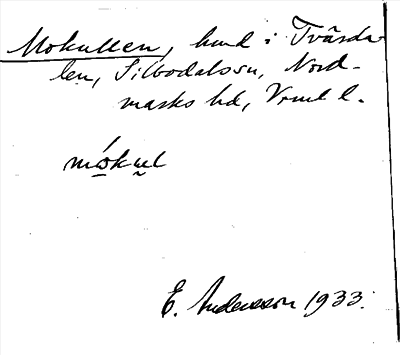 Mokullen, hmd i Tvärda-
len, Silbodalssn, Nord-
marks hd, Vrml l.
mókul
E. Andersson 1933.